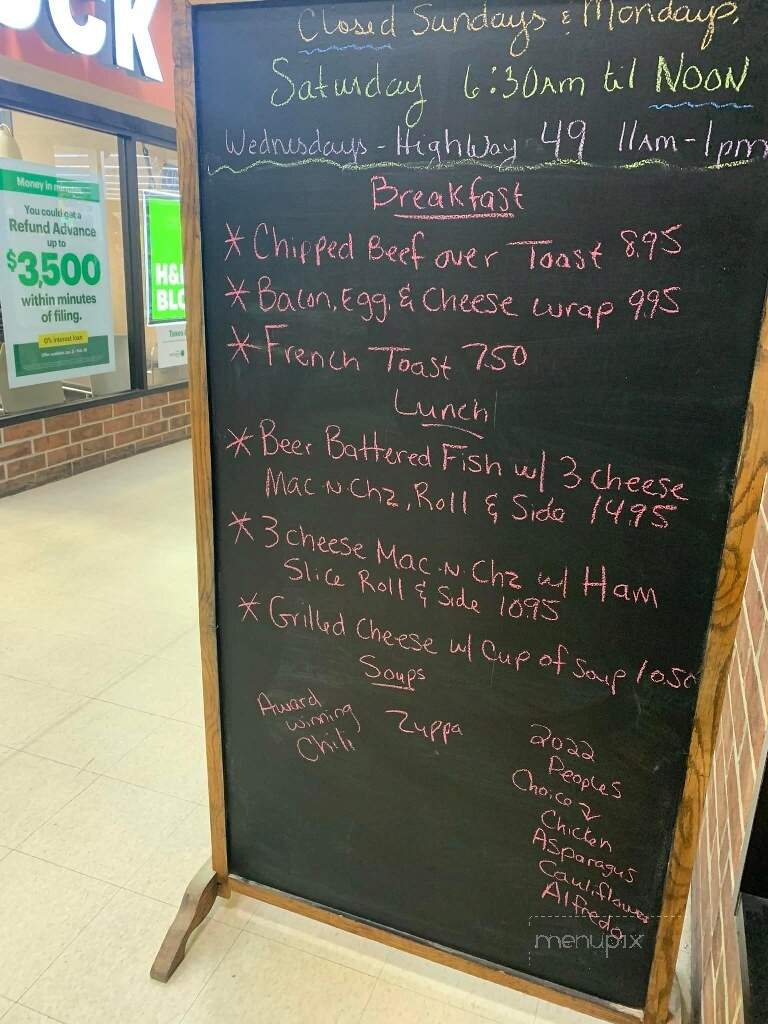 CK
Money in minutes
You could get a
Refund Advance
up to
$3,500
within minutes
of filing.
0% interest loan
H&
BLO
Closed Sundays & Mondays.
Saturday 6:30AM til NOON
Wednesdays - HighWay 49 11AM-1pm
Breakfast
* Chipped Beef over Toast 8.95
* Bacon, Egg, & Cheese wrap 9.95
* French Toast 7.50
Lunch
* Beer Battered Fish w/ 3 cheese
Mac-N-Chz, Roll & Side 14.95
* 3 cheese Mac-N-Chz w/ Ham
Slice Roll & Side 10.95
* Grilled Cheese w/ Cup of Soup 10.50
Soups
Award
winning
Chili
Zuppa
2022
Peoples
Choice
Chicken
Asparagus
Cauliflower
Alfredo
menupix